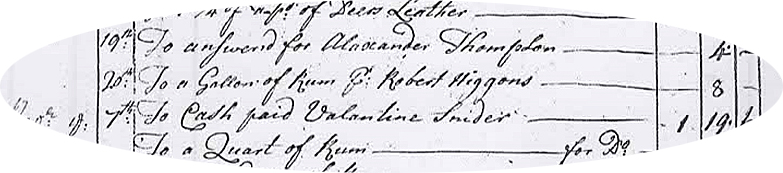 of Deers Leather
19th To answerd for Alaxander Thompson 4
20th To a Gallon of Rum pr. Robert Higgons 8
7th To Cash paid Valantine Snider 1 19 1
To a Quart of Rum for Do